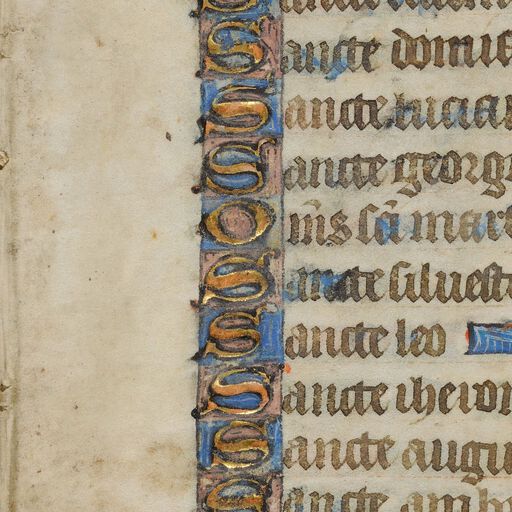 Sancte
Sancte domic
Sancte lucian
Sancte georgi
Om̄s sc̄i mart
Sancte siluest
Sancte leo
Sancte iheron
Sancte augu
Sancte amb